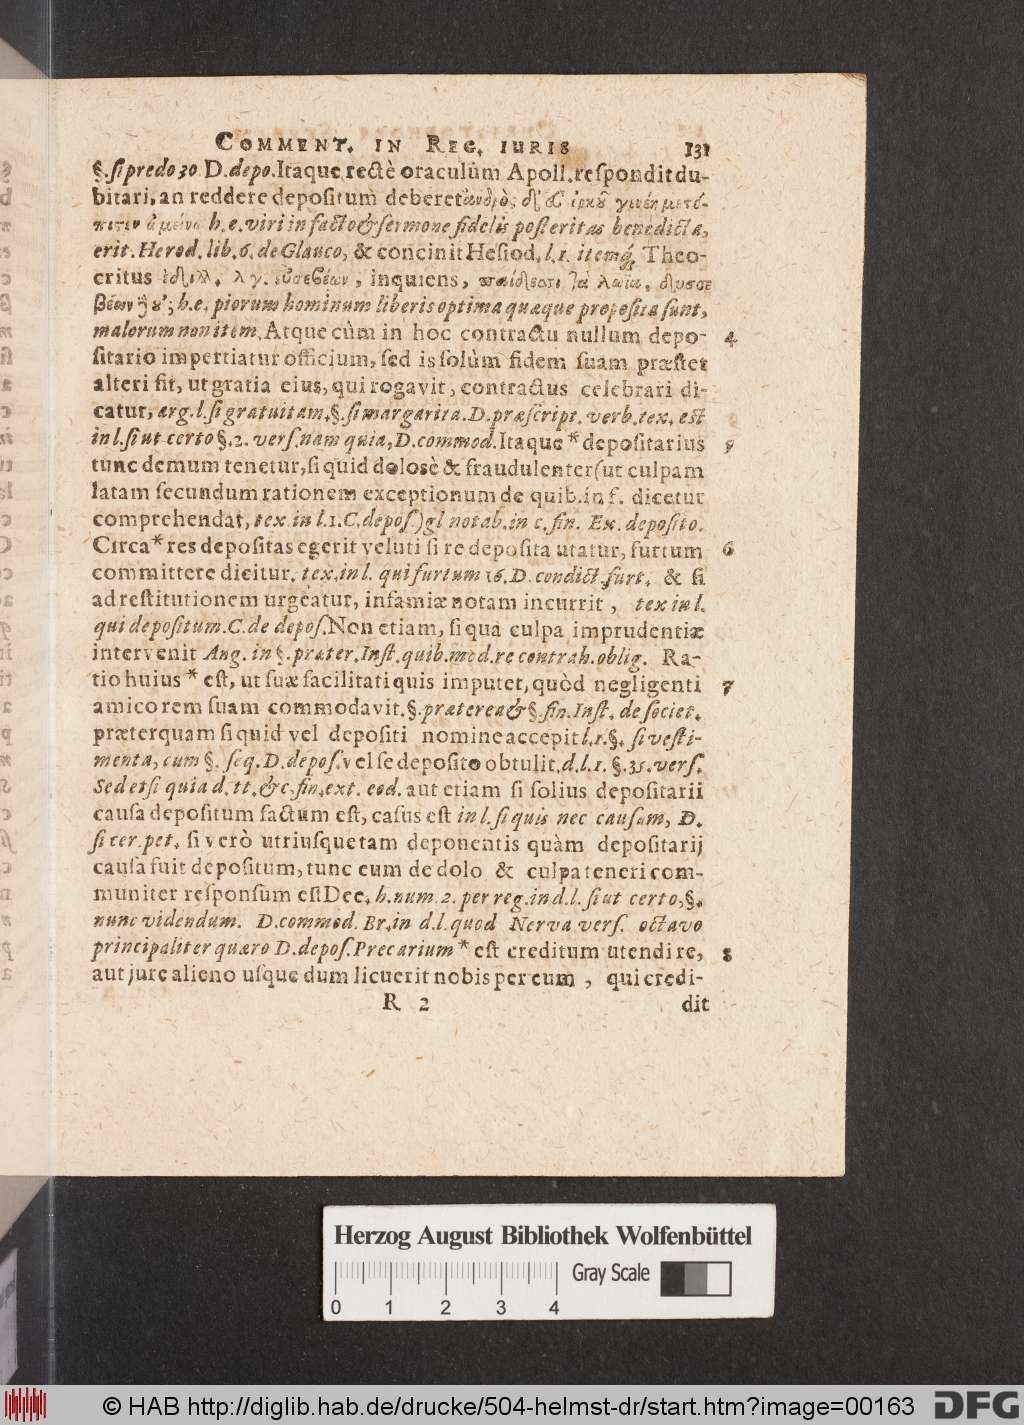 COMMENT. IN REG. IURIS 131
§. si predo 30 D. depo. Itaque rectè oraculum Apoll. respondit du-
bitari, an reddere depositum deberet
h. e. viri in facto & sermone fidelis posteritas benedicta,
erit. Herod. lib. 6. de Glauco, & concinit Hesiod. l. 1. itemq; Theo-
critus inquiens,
h. e. piorum hominum liberis optima quæque proposita sunt,
malorum non item. Atque cùm in hoc contractu nullum depo- 4
sitario impertiatur officium, sed is solùm fidem suam præstet
alteri fit, ut gratia eius, qui rogavit, contractus celebrari di-
catur, arg. l. si gratuitam. §. si margarita. D. præscript. verb. tex. est
in l. si ut certo §. 2. vers. nam quia, D. commod. Itaque * depositarius 5
tunc demum tenetur, si quid dolosè & fraudulenter (ut culpam
latam secundum rationem exceptionum de quib. in f. dicetur
comprehendat, tex. in l. 1. C. depos.) gl notab. in c. fin. Ex. deposito.
Circa * res depositas egerit veluti si re deposita utatur, furtum 6
committere dicitur. tex. in l. qui furtum 16. D. condict. furt. & si
ad restitutionem urgeatur, infamiæ notam incurrit, tex in l.
qui depositum. C. de depos. Non etiam, si qua culpa imprudentiæ
intervenit Ang. in §. præter. Inst. quib. mod. re contrah. oblig. Ra-
tio huius * est, ut suæ facilitati quis imputet, quòd negligenti 7
amico rem suam commodavit. §. præterea & §. fin. Inst. de societ.
præterquam si quid vel depositi nomine accepit l. 1. §. si vesti-
menta, cum §. seq. D. depos. vel se deposito obtulit. d. l. 1. §. 35. vers.
Sed etsi quia d. tt. & c. fin. ext. eod. aut etiam si solius depositarii
causa depositum factum est, casus est in l. si quis nec causam, D.
si cer. pet. si verò utriusque tam deponentis quàm depositarij
causa fuit depositum, tunc eum de dolo & culpa teneri com-
muniter responsum est Dec. h. num. 2. per reg. in d. l. si ut certo, §.
nunc videndum. D. commod. Br. in d. l. quod Nerva vers. octavo
principaliter quæro D. depos. Precarium * est creditum utendi re, 8
aut jure alieno usque dum licuerit nobis per eum, qui credi-
R 2 dit
Herzog August Bibliothek Wolfenbüttel
Gray Scale
0 1 2 3 4
© HAB http://diglib.hab.de/drucke/504-helmst-dr/start.htm?image=00163
DFG